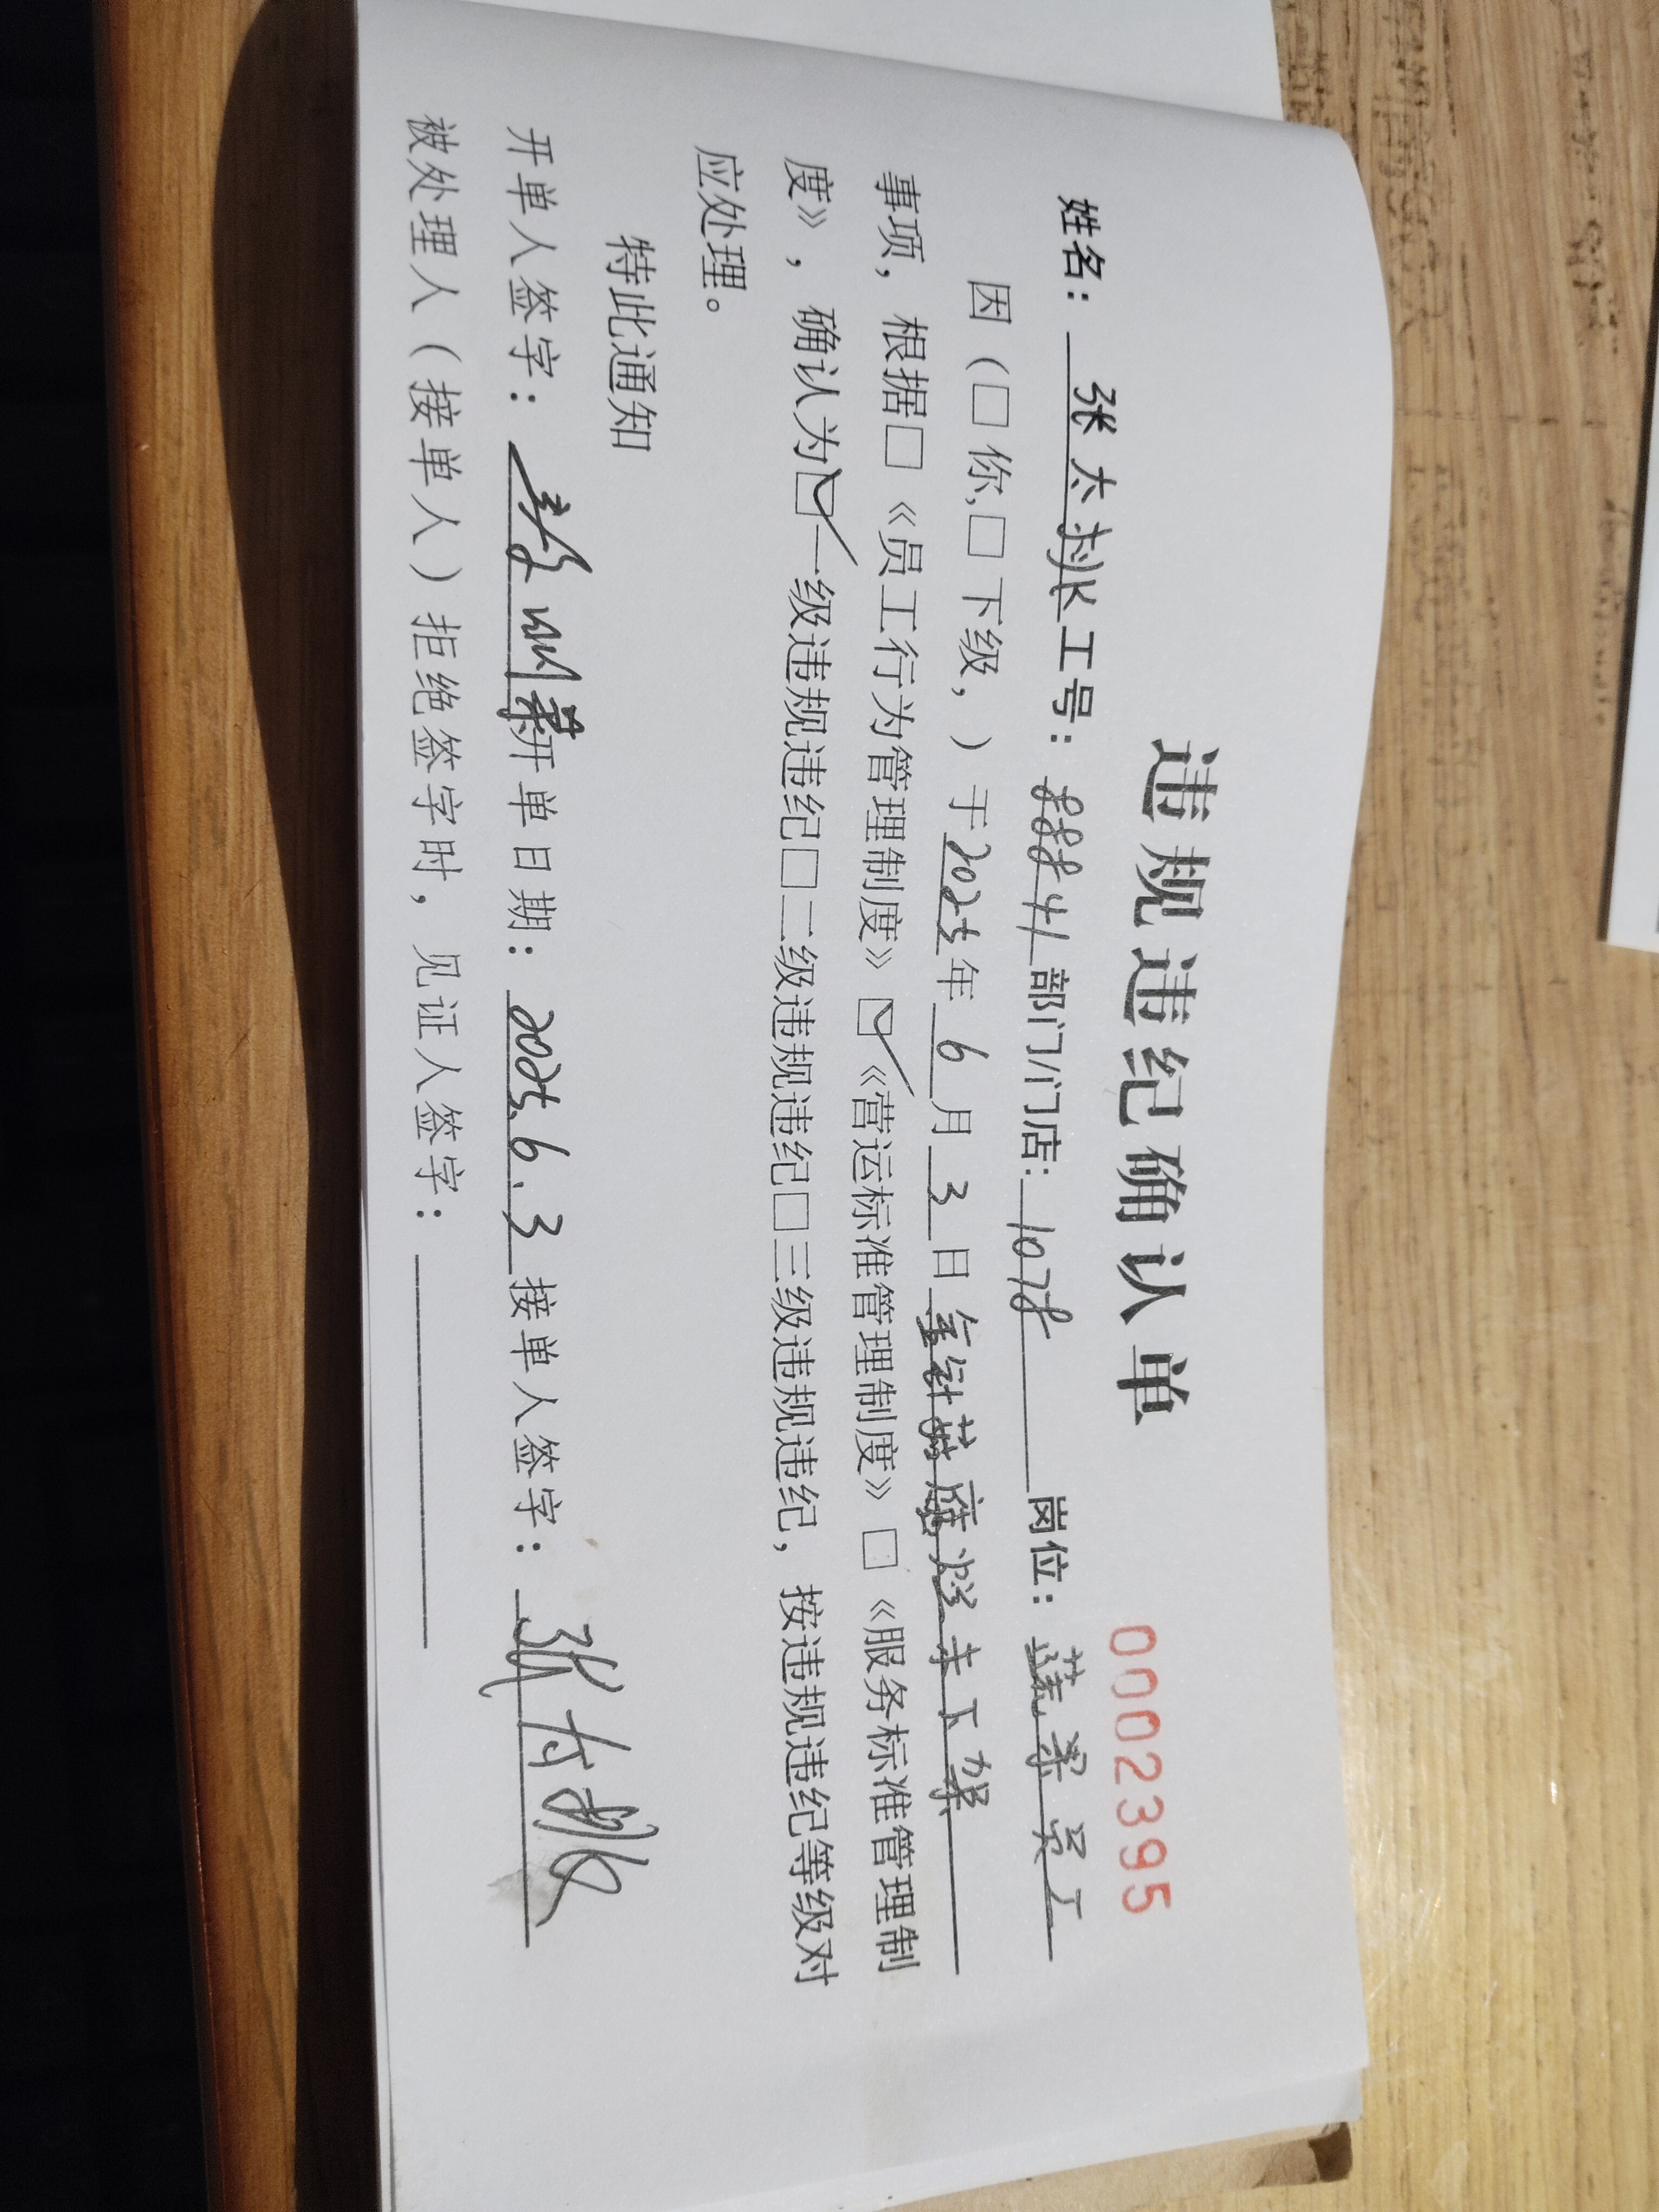 违规违纪确认单
00002395
姓名：张太 工号：88841 部门/门店：1078 岗位：蔬菜员工
因（□你,□下级，）于2025年6月3日金针菇腐烂未下架
事项，根据□《员工行为管理制度》☑《营运标准管理制度》□《服务标准管理制
度》，确认为☑一级违规违纪□二级违规违纪□三级违规违纪，按违规违纪等级对
应处理。
特此通知
开单人签字： 开单日期：2025.6.3 接单人签字：张
被处理人（接单人）拒绝签字时，见证人签字：